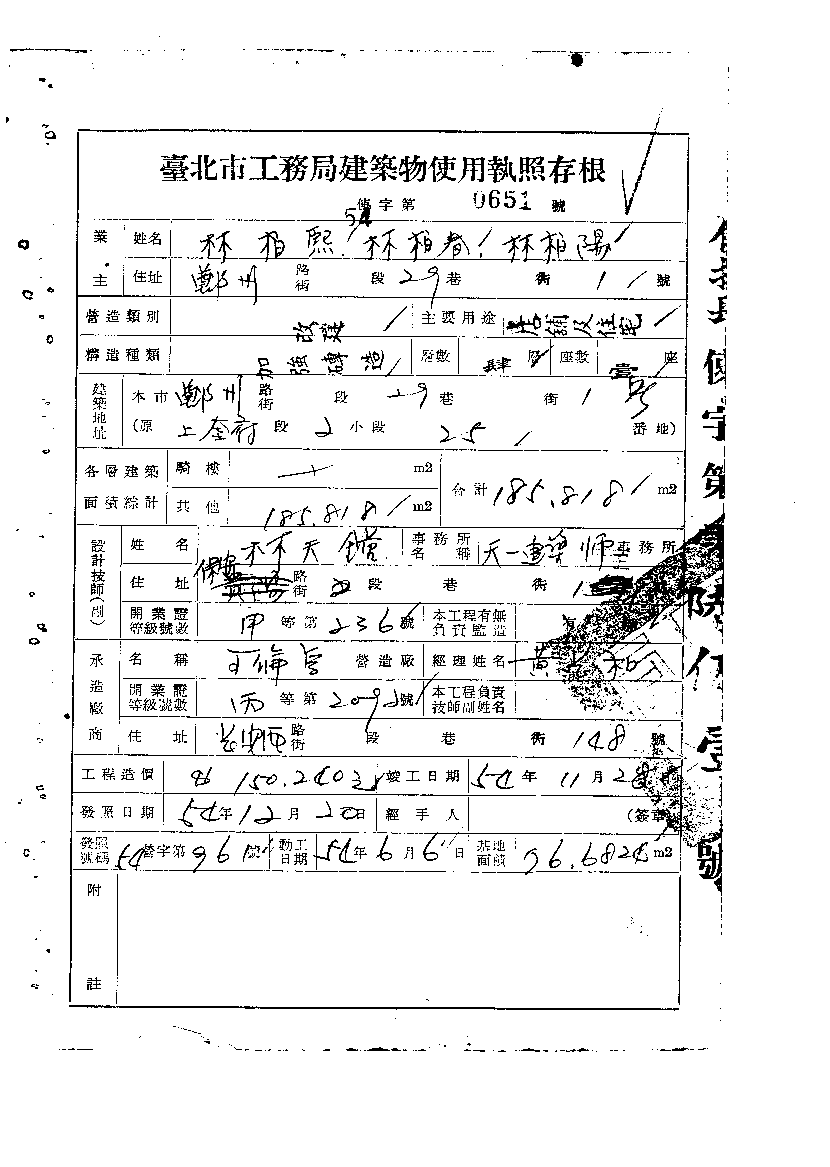 臺北市工務局建築物使用執照存根
54使字第 0651 號
業主 姓名 林柏熙 林柏春 林柏陽
住址 鄭州 路街 段 29 巷 街 1 號
營造類別 改建 主要用途 店鋪及住宅
構造種類 加強磚造 層數 肆層 座數 壹座
建築地址 本市 鄭州 路街 段 29 巷 街 1 號
(原 上奎府 段 2 小段 25 番地)
各層建築面積綜計 騎樓 m2 合計 185.818 m2
其他 185.818 m2
設計技師(副) 姓名 林天 事務所名稱 天一建築師事務所
住址 路街 段 巷 街
開業證等級號數 甲 等第 236 號 本工程有無負責監造
承造廠商 名稱 營造廠 經理姓名 黃
開業證等級號數 丙 等第 2092 號 本工程負責技師副姓名
住址 路街 段 巷 街 148 號
工程造價 150.240 竣工日期 54年 11月 28
發照日期 54年 12月 20日 經手人 (簽章)
發照號碼 54營字第 96 號 動工日期 54年 6月 6日 基地面積 96.6824 m2
附註
使字第
陸伍壹號